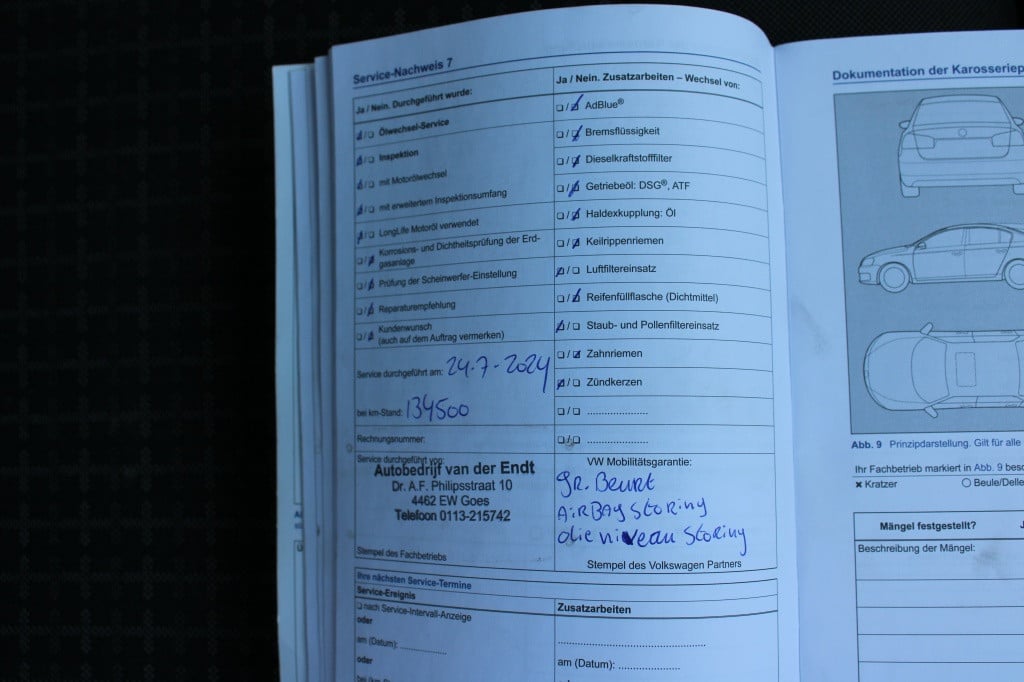 Service-Nachweis 7
Ja / Nein. Durchgeführt wurde:
Ölwechsel-Service
Inspektion
mit Motorölwechsel
mit erweitertem Inspektionsumfang
LongLife Motoröl verwendet
Korrosions- und Dichtheitsprüfung der Erd-
gasanlage
Prüfung der Scheinwerfer-Einstellung
Reparaturempfehlung
Kundenwunsch
(auch auf dem Auftrag vermerken)
Service durchgeführt am: 24-7-2024
bei km-Stand: 134500
Rechnungsnummer:
Service durchgeführt von:
Autobedrijf van der Endt
Dr. A.F. Philipsstraat 10
4462 EW Goes
Telefoon 0113-215742
Stempel des Fachbetriebs
Ja / Nein. Zusatzarbeiten – Wechsel von:
AdBlue®
Bremsflüssigkeit
Dieselkraftstofffilter
Getriebeöl: DSG®, ATF
Haldexkupplung: Öl
Keilrippenriemen
Luftfiltereinsatz
Reifenfüllflasche (Dichtmittel)
Staub- und Pollenfiltereinsatz
Zahnriemen
Zündkerzen
VW Mobilitätsgarantie:
gr. Beurt
AIRBAG Storing
olie niveau Storing
Stempel des Volkswagen Partners
Ihre nächsten Service-Termine
Service-Ereignis
nach Service-Intervall-Anzeige
oder
am (Datum):
oder
Zusatzarbeiten
am (Datum):
Dokumentation der
Abb. 9 Prinzipdarstellung. Gilt für alle
Ihr Fachbetrieb markiert in Abb. 9
Kratzer
Beule/Delle
Mängel festgestellt?
Beschreibung der Mängel: